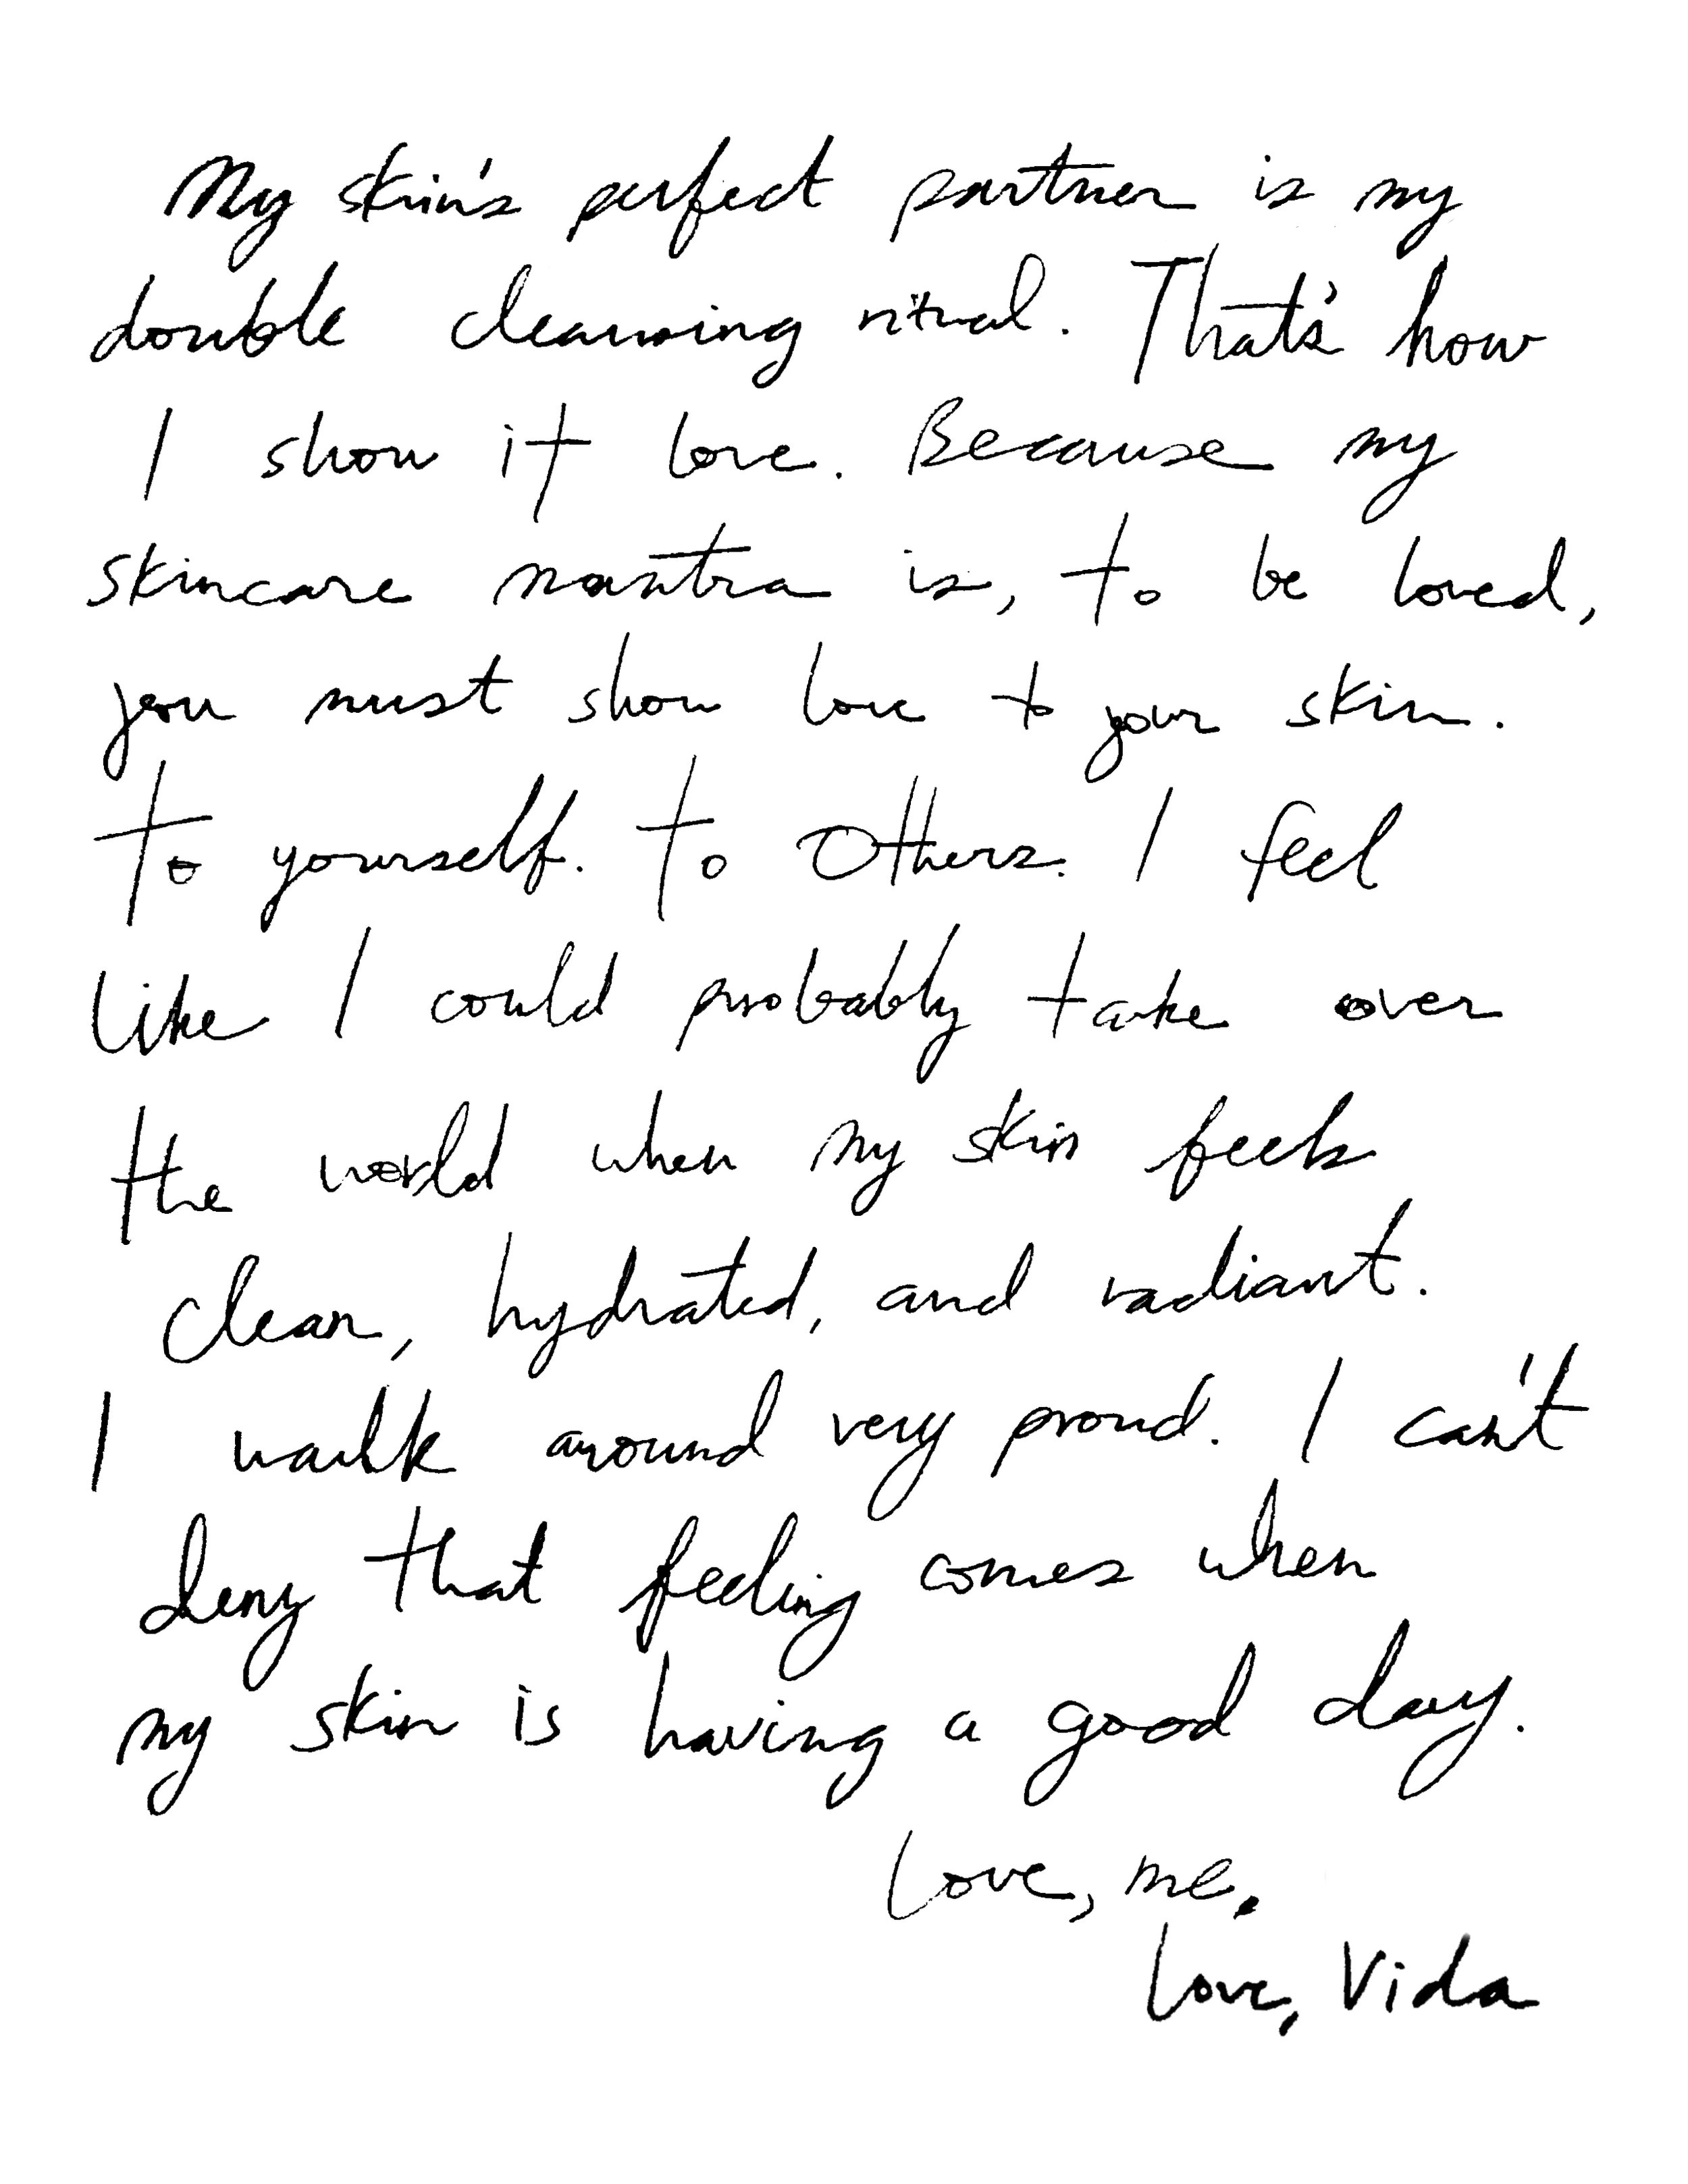 My skin's perfect partner is my
double cleansing ritual. That's how
I show it love. Because my
skincare mantra is, to be loved,
you must show love to your skin.
To yourself. To others. I feel
like I could probably take over
the world when my skin feels
clean, hydrated, and radiant.
I walk around very proud. I can't
deny that feeling comes when
my skin is having a good day.
Love, me.
Love, Vida